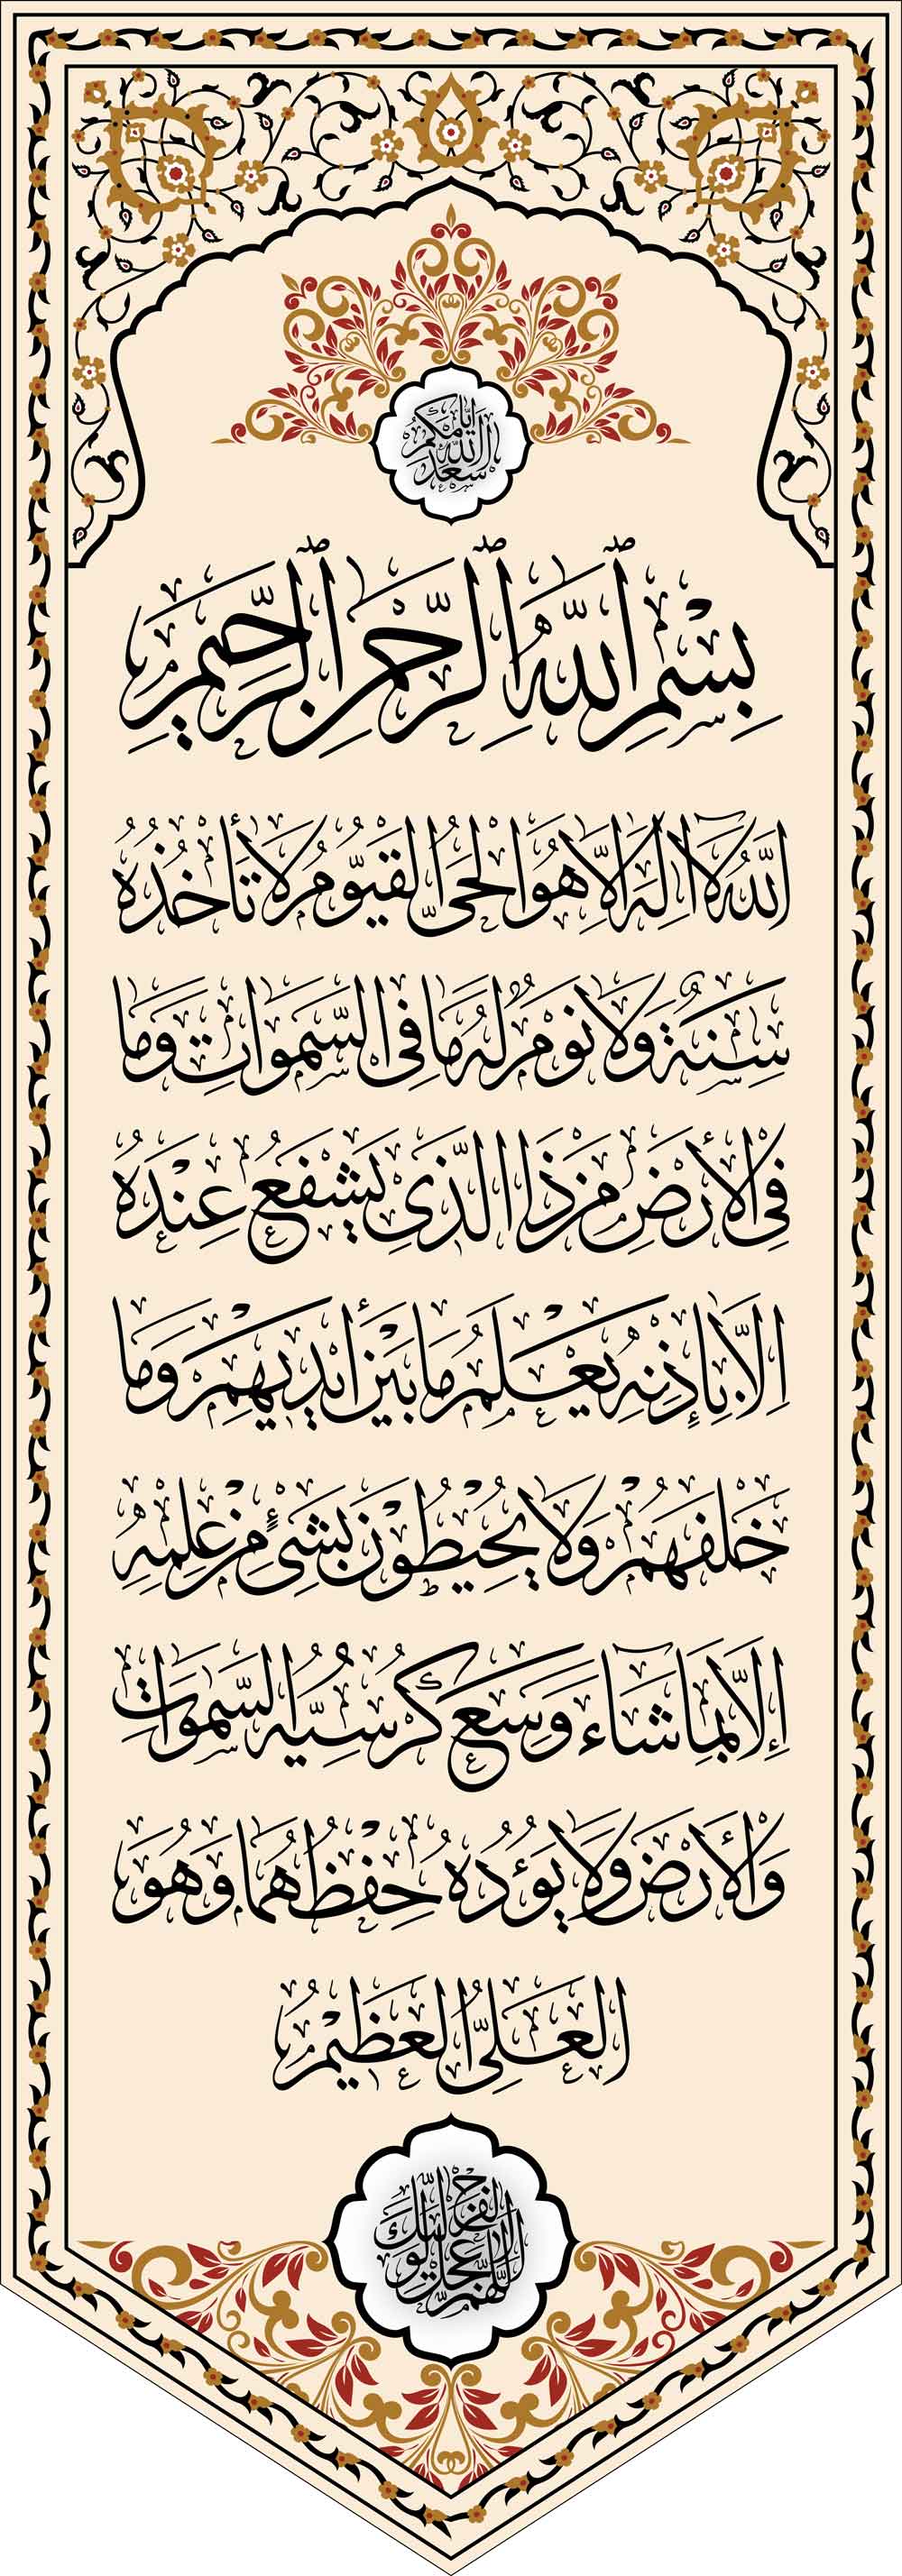 أسعد الله أيامكم
بِسْمِ ٱللَّهِ ٱلرَّحْمٰنِ ٱلرَّحِيمِ
اَللّٰهُ لَآ اِلٰهَ اِلَّا هُوَ الْحَىُّ الْقَيُّومُ لَا تَأْخُذُهُ
سِنَةٌ وَلَا نَوْمٌ لَهُ مَا فِى السَّمٰوَاتِ وَمَا
فِى الْأَرْضِ مَنْ ذَا الَّذِى يَشْفَعُ عِنْدَهُ
اِلَّا بِإِذْنِهِ يَعْلَمُ مَا بَيْنَ أَيْدِيهِمْ وَمَا
خَلْفَهُمْ وَلَا يُحِيطُونَ بِشَىْءٍ مِنْ عِلْمِهِ
إِلَّا بِمَا شَآءَ وَسِعَ كُرْسِيُّهُ السَّمٰوَاتِ
وَالْأَرْضَ وَلَا يَؤُدُهُ حِفْظُهُمَا وَهُوَ
الْعَلِىُّ الْعَظِيمُ
اللّهم عجل لوليك الفرج